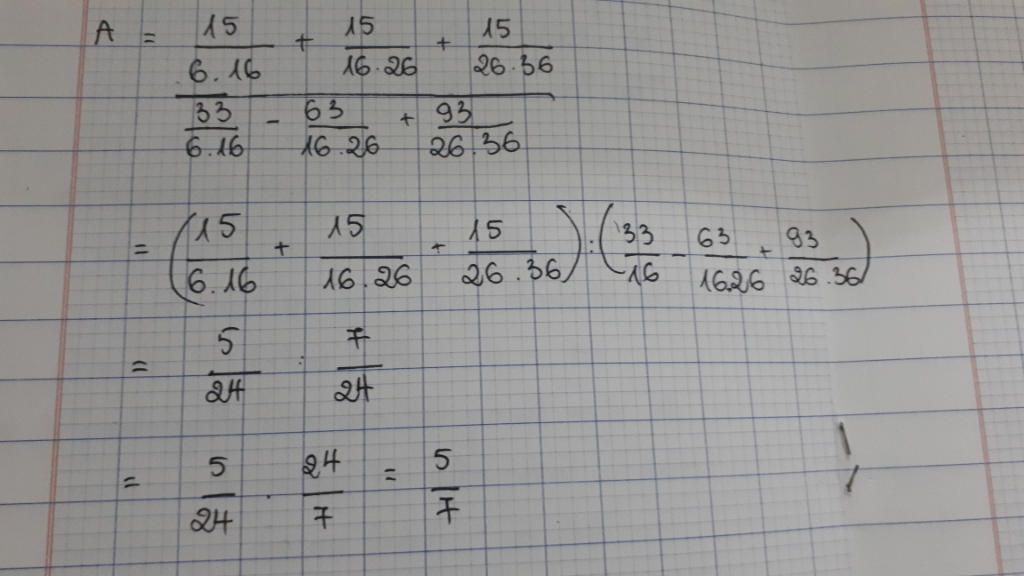 A = 15/6.16 + 15/16.26 + 15/26.36
33/6.16 - 63/16.26 + 93/26.36
= (15/6.16 + 15/16.26 + 15/26.36) : (33/16 - 63/16.26 + 93/26.36)
= 5/24 : 7/24
= 5/24 . 24/7 = 5/7